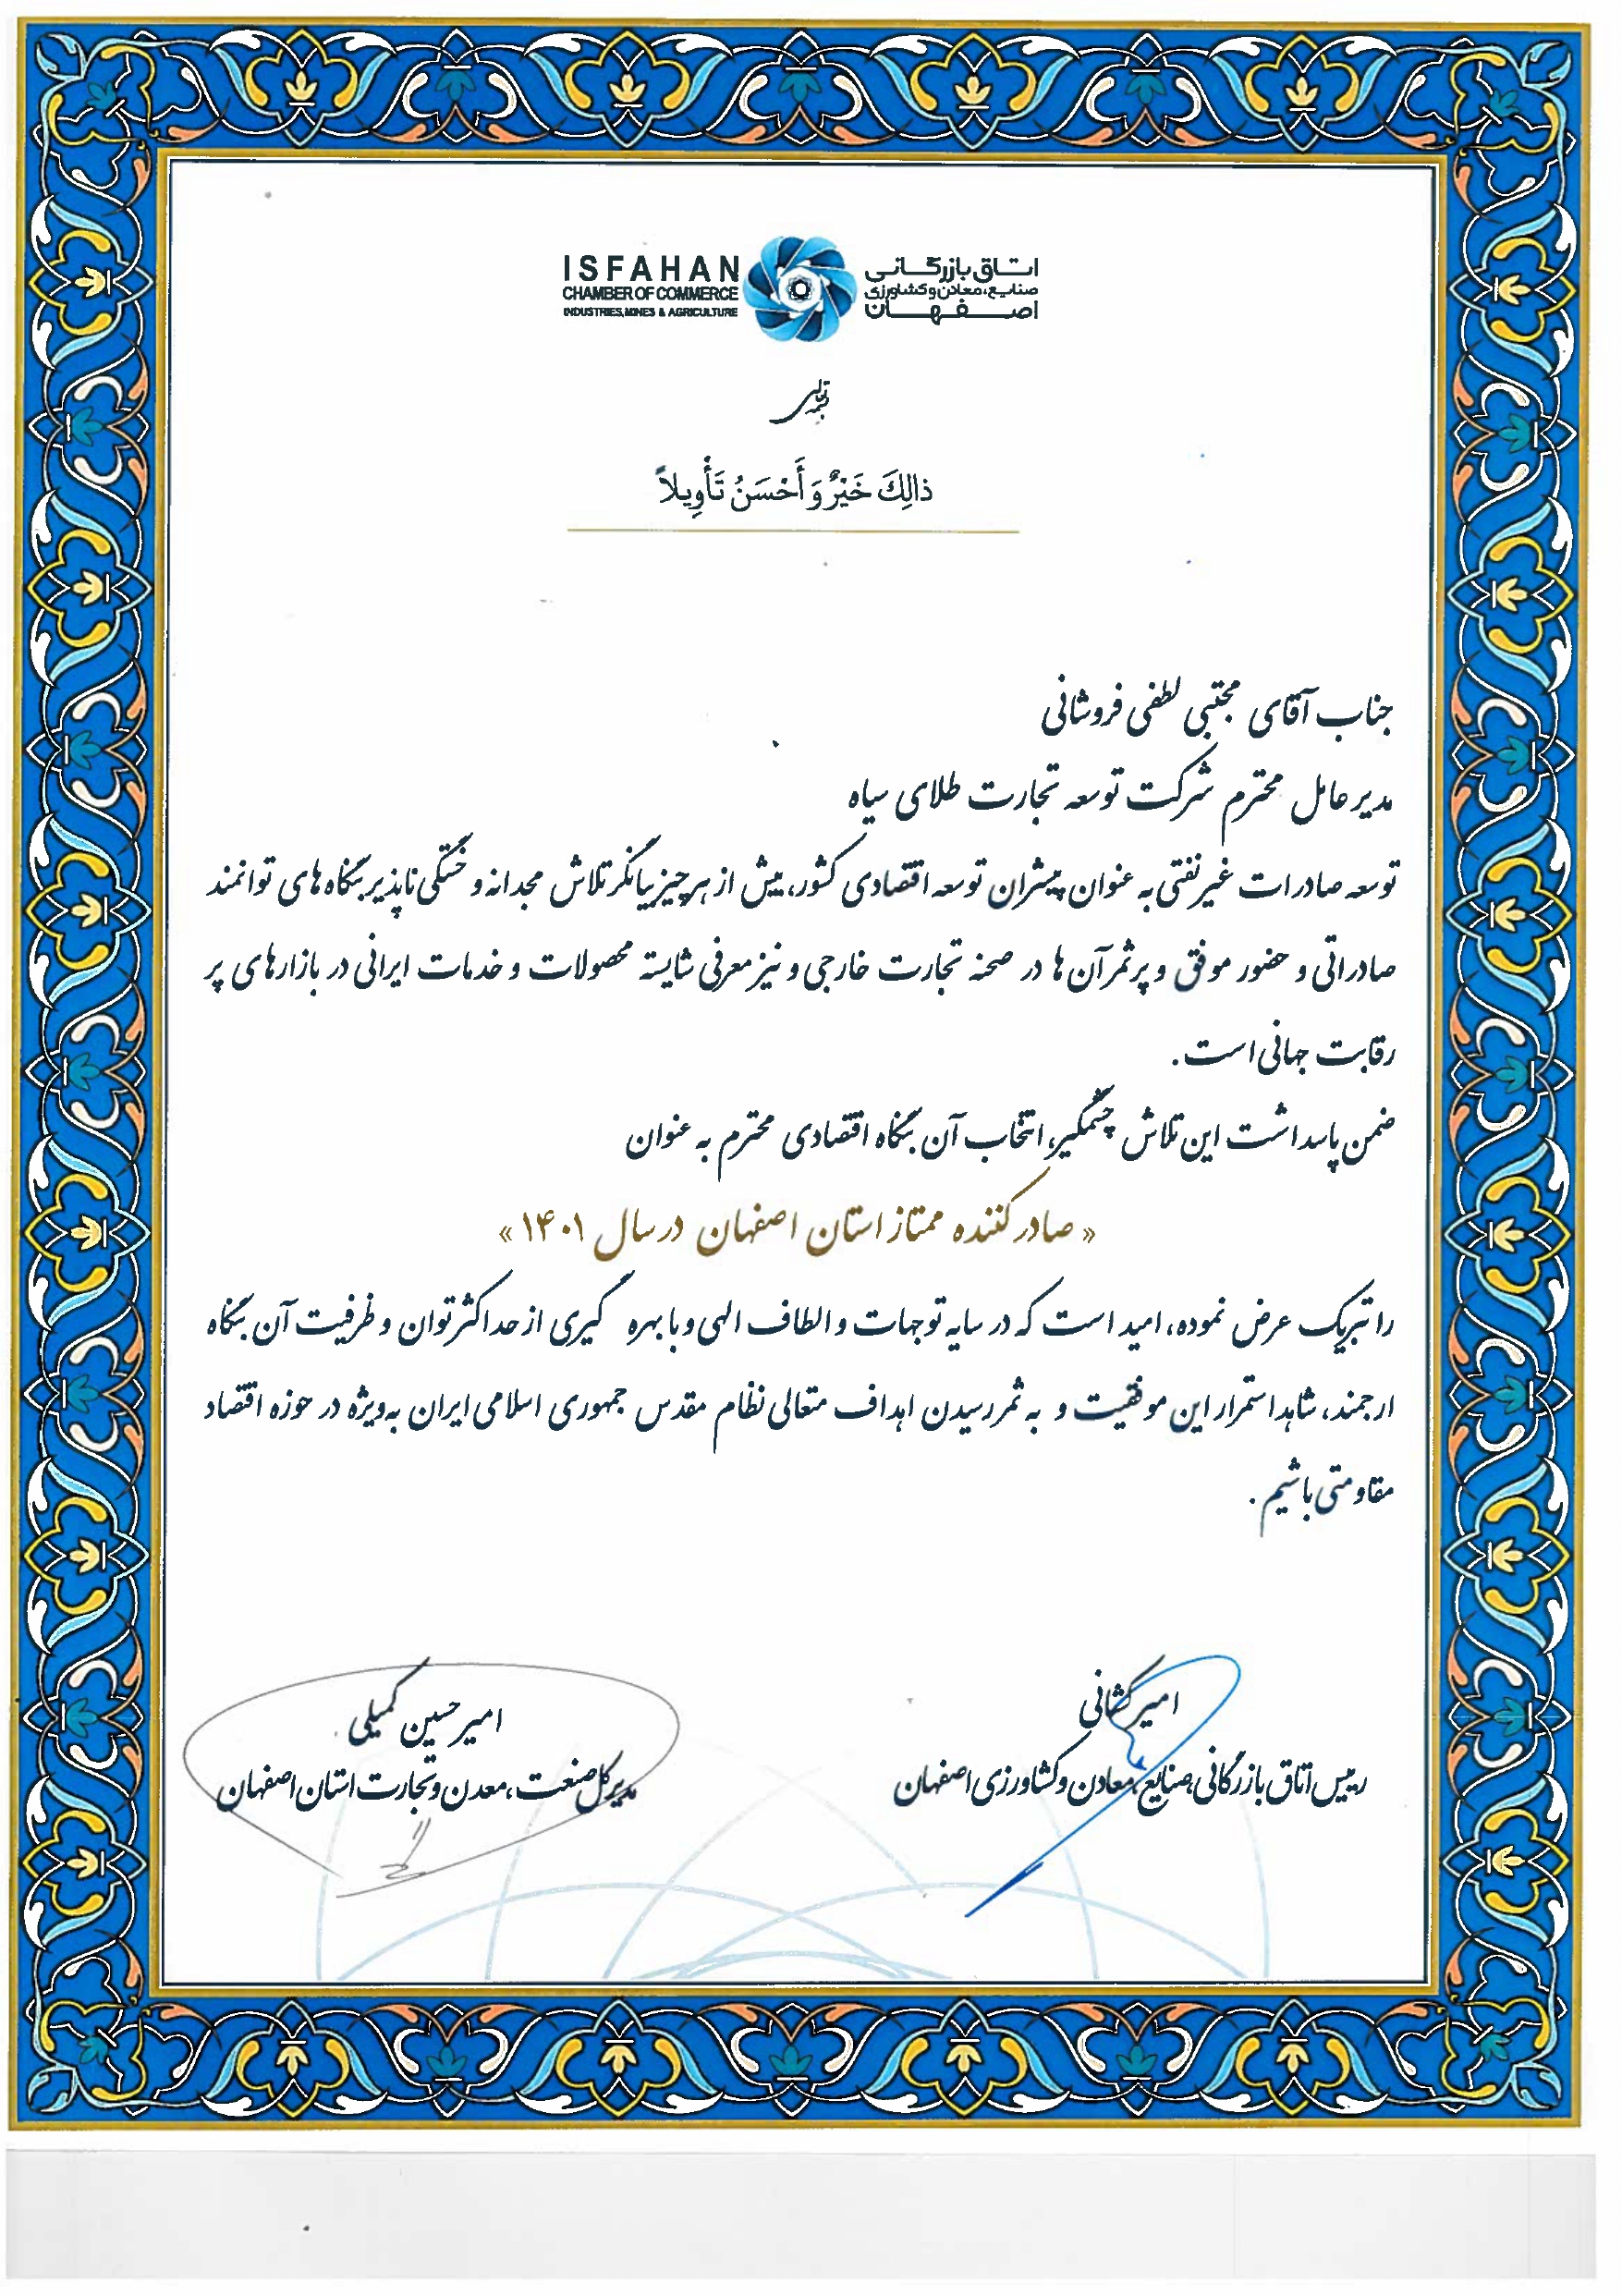 ISFAHAN
CHAMBER OF COMMERCE
INDUSTRIES, MINES & AGRICULTURE
اتاق بازرگانی
صنایع، معادن و کشاورزی
اصفهان
بسمه تعالی
ذالِكَ خَيْرٌ وَ أَحْسَنُ تَأْوِيلاً
جناب آقای مجتبی لطفی فروشانی
مدیر عامل محترم شرکت توسعه تجارت طلای سیاه
توسعه صادرات غیر نفتی به عنوان پیشران توسعه اقتصادی کشور، بیش از هر چیز بیانگر تلاش مجدانه و خستگی ناپذیر بنگاه های توانمند
صادراتی و حضور موفق و پرثمر آن ها در صحنه تجارت خارجی و نیز معرفی شایسته محصولات و خدمات ایرانی در بازارهای پر
رقابت جهانی است.
ضمن پاسداشت این تلاش چشمگیر، انتخاب آن بنگاه اقتصادی محترم به عنوان
« صادر کننده ممتاز استان اصفهان در سال ۱۴۰۱ »
را تبریک عرض نموده، امید است که در سایه توجهات و الطاف الهی و با بهره گیری از حداکثر توان و ظرفیت آن بنگاه
ارجمند، شاهد استمرار این موفقیت و به ثمر رسیدن اهداف متعالی نظام مقدس جمهوری اسلامی ایران به‌ویژه در حوزه اقتصاد
مقاومتی باشیم.
امیر کشانی
رییس اتاق بازرگانی، صنایع، معادن و کشاورزی اصفهان
امیر حسین کمیلی
مدیرکل صنعت، معدن و تجارت استان اصفهان